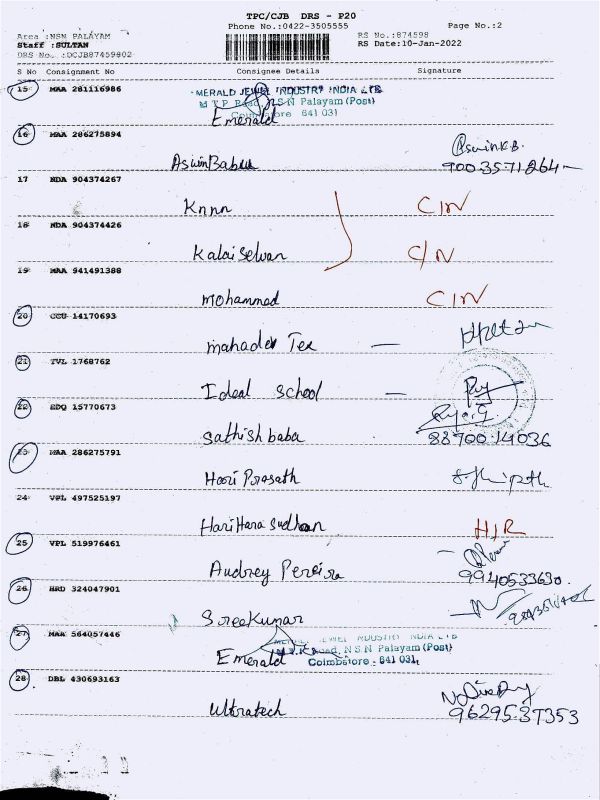 TPC/CJB DRS - P20
Phone No.:0422-3505555 Page No.:2
Area :NSN PALAYAM RS No.:874598
Staff :SULTAN RS Date:10-Jan-2022
DRS No. :DCJB87459802
S No Consignment No Consignee Details Signature
15 MAA 281116986 MERALD JEWEL INDUSTRY INDIA LTD
M.T.P. Road, N.S.N Palayam (Post)
Coimbatore 641 031
Emerald
16 MAA 286275894 Aswin K.B.
Aswin Babu 9003571264
17 NDA 904374267
Knnn C/N
18 NDA 904374426
Kalai Selvan C/N
19 MAA 941491388
Mohammed C/N
20 CCU 14170693
mahadev Tex
21 TVL 1768762
Ideal School
22 EDQ 15770673
Sathish baba 88700 14036
23 MAA 286275791
Hari Prasath
24 VPL 497525197
Hari Hara Sudhan H/R
25 VPL 519976461
Audrey Pereira 9940533630.
26 HRD 324047901
Sree Kumar
27 MAA 564057446 JEWEL INDUSTRY INDIA LTD
Road, N.S.N Palayam (Post)
Emerald Coimbatore - 641 031.
28 DBL 430693163
Ultratech 96295 37353